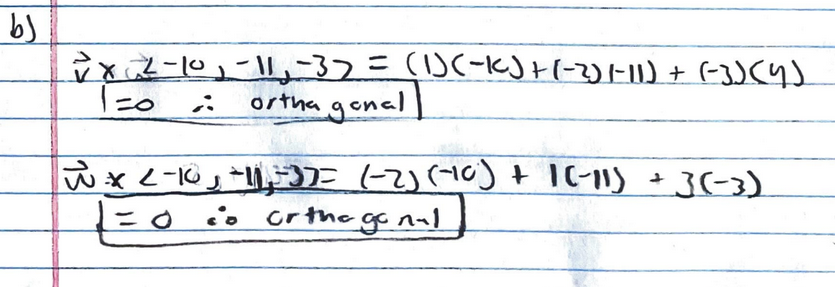 b)
v⃗ × <-10, -11, -3> = (1)(-10)+(-2)(-11) + (-3)(4)
=0 ∴ orthagonal
w⃗ × <-10, -11, -3> = (-2)(-10) + 1(-11) + 3(-3)
= 0 ∴ orthagonal